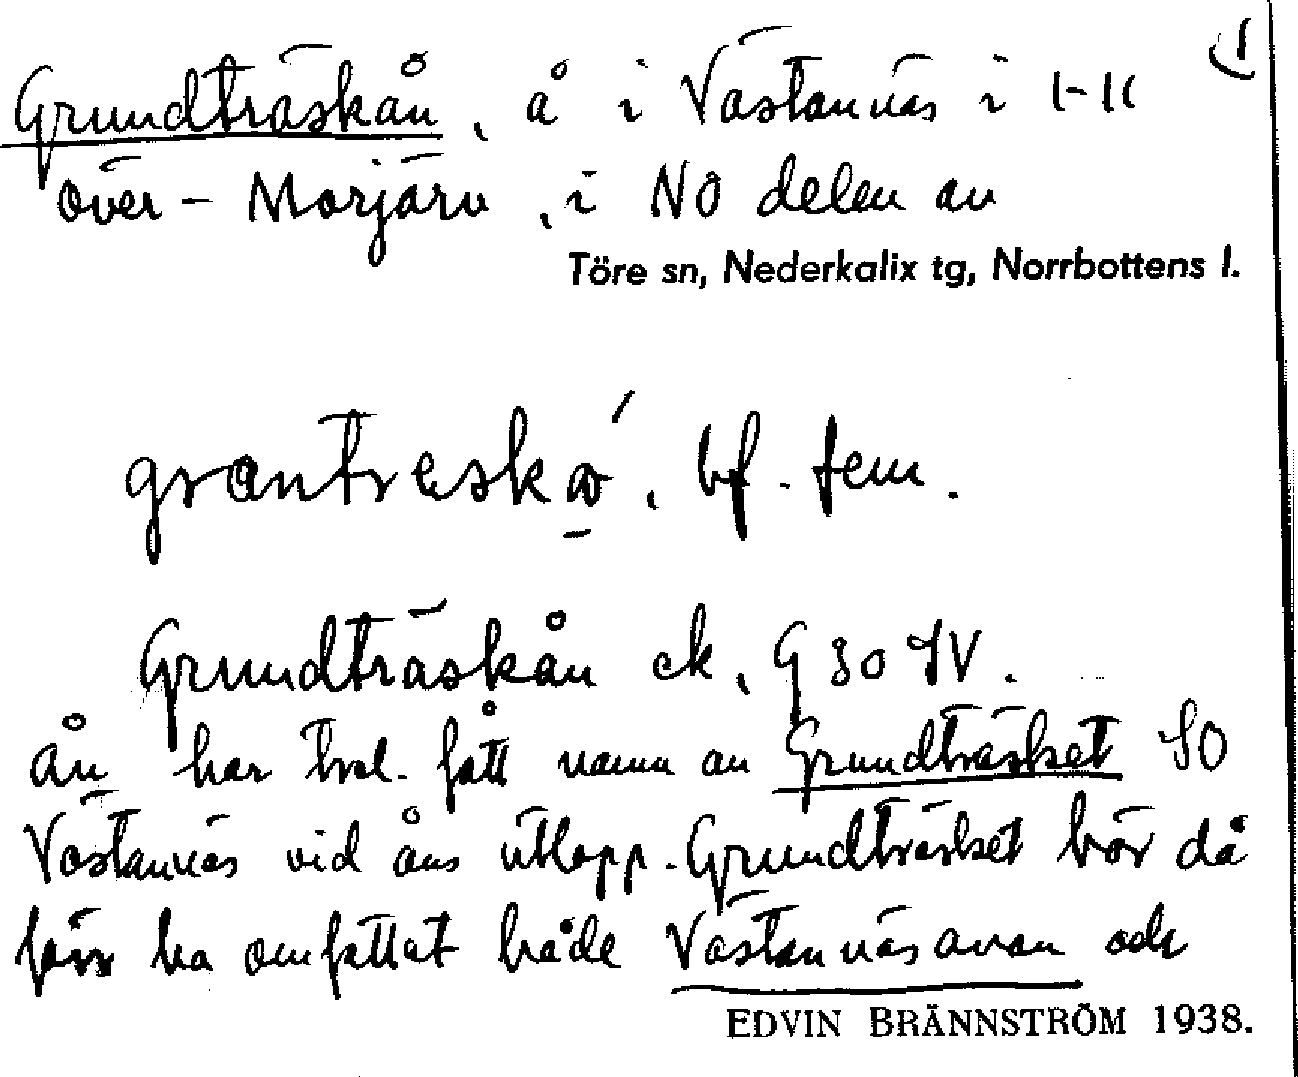 1)
Grundträskån, å i Västannäs i I-II
över-Morjärv, i NÖ delen av
Töre sn, Nederkalix tg, Norrbottens l.
grantreskå, bf. fem.
Grundträskån ek, G 30 IV.
ån har trol. fått namn av Grundträsket SO
Västannäs vid åns utlopp. Grundträsket bör då
förr ha omfattat både Västannäsavan och
EDVIN BRÄNNSTRÖM 1938.